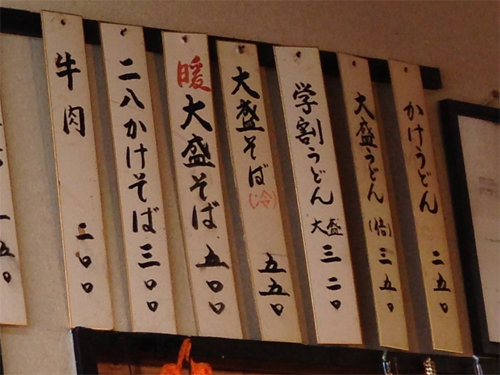 かけうどん 二五〇
大盛うどん (倍) 三五〇
学割うどん 大盛 三二〇
大盛そば (冷) 五五〇
暖大盛そば 五〇〇
二八かけそば 三〇〇
牛肉 二〇〇
五〇